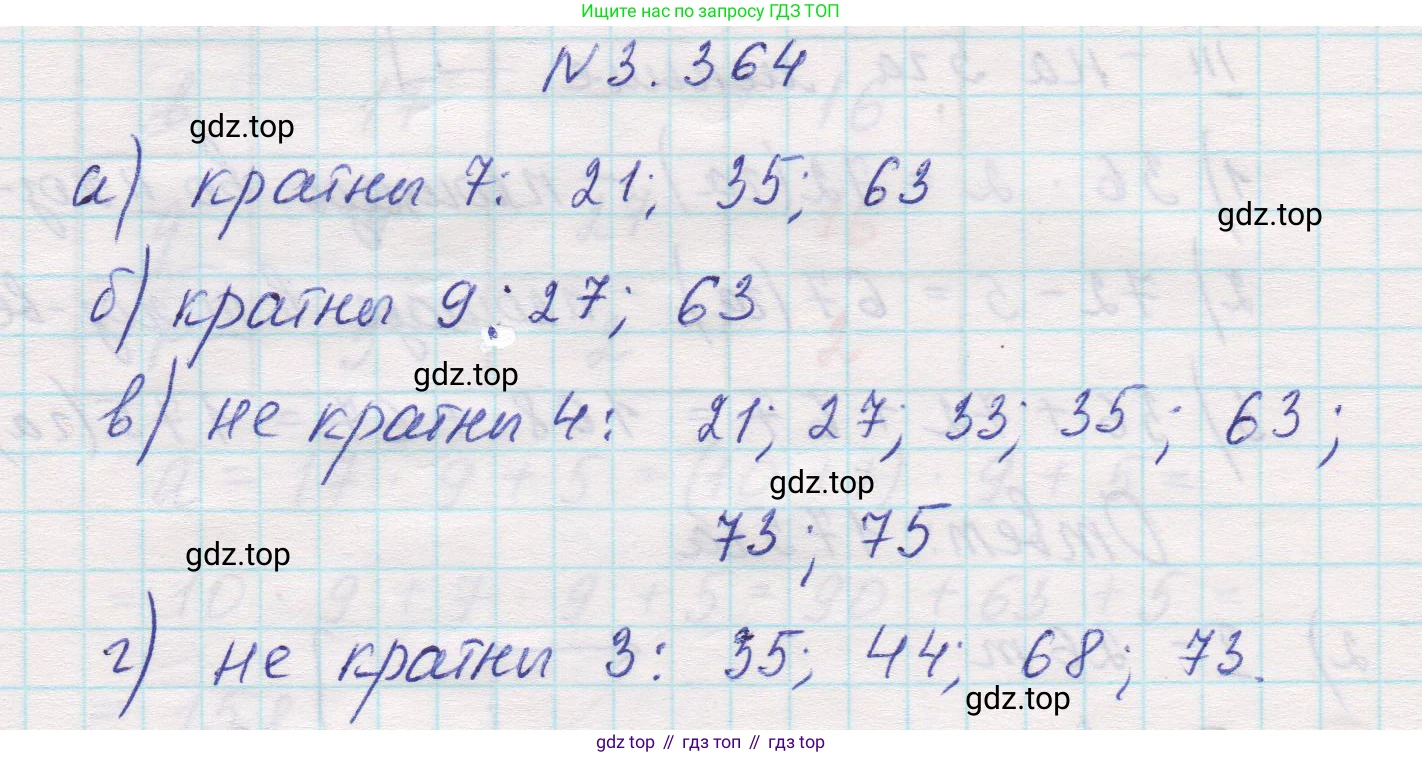 Ищите нас по запросу ГДЗ ТОП
N 3. 364
gdz.top
а) кратны 7: 21; 35; 63
gdz.top
б) кратны 9: 27; 63
gdz.top
в) не кратны 4: 21; 27; 33; 35; 63;
gdz.top
73; 75
gdz.top
г) не кратны 3: 35; 44; 68; 73.
gdz.top
gdz top // гдз топ // gdz top